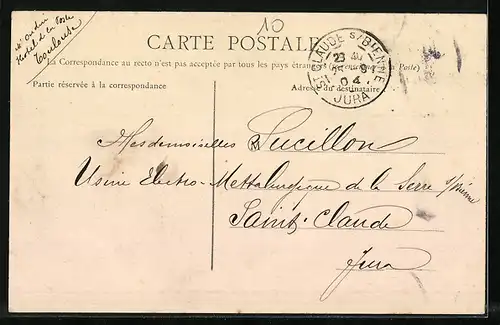 10
Hotel d
Toulouse
CARTE POSTALE
La Correspondance au recto n'est pas acceptée par tous les pays étrangers (
Poste)
Partie réservée à la correspondance
Adresse du destinataire
ST CLAUDE S/BIENNE
23
04
JURA
Mesdemoiselles Lucillon
Usine Electro-Mettalurgique de la Serre
Saint-Claude
Jura